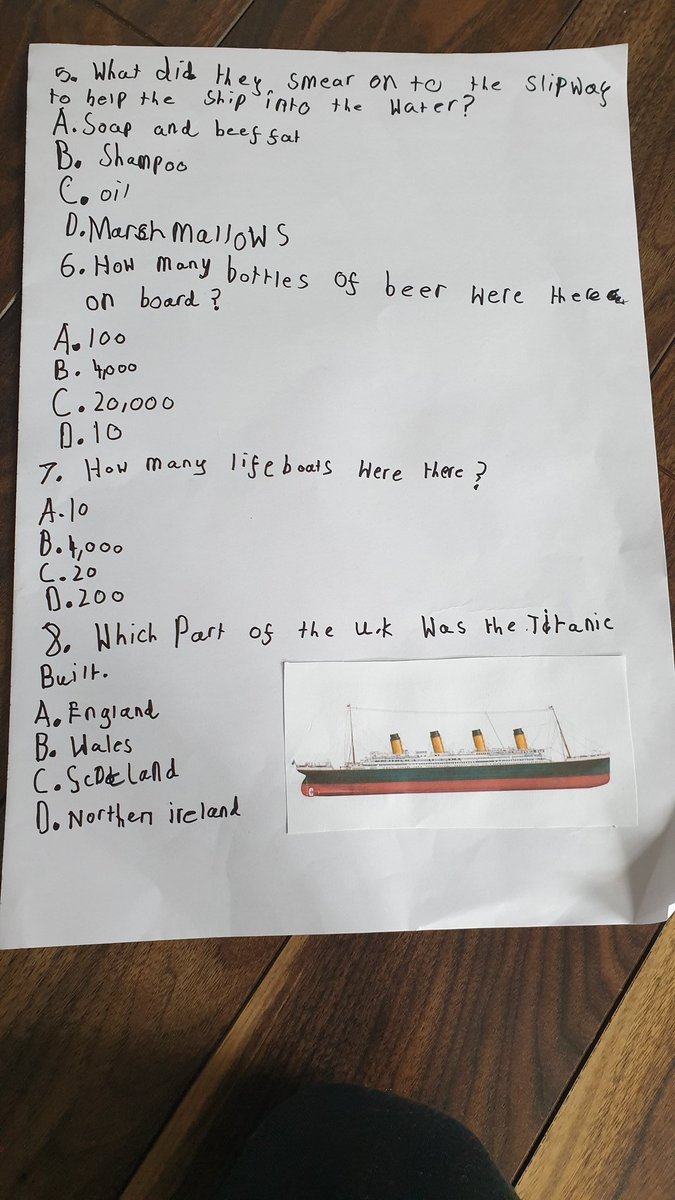 5. What did they smear on to the slipway
to help the ship into the water?
A. Soap and beef fat
B. Shampoo
C. oil
D. Marshmallows
6. How many bottles of beer were there
on board?
A. 100
B. 4,000
C. 20,000
D. 10
7. How many lifeboats were there?
A. 10
B. 4,000
C. 20
D. 200
8. Which Part of the U.K Was the Titanic
Built.
A. England
B. Wales
C. Scotland
D. Northern ireland